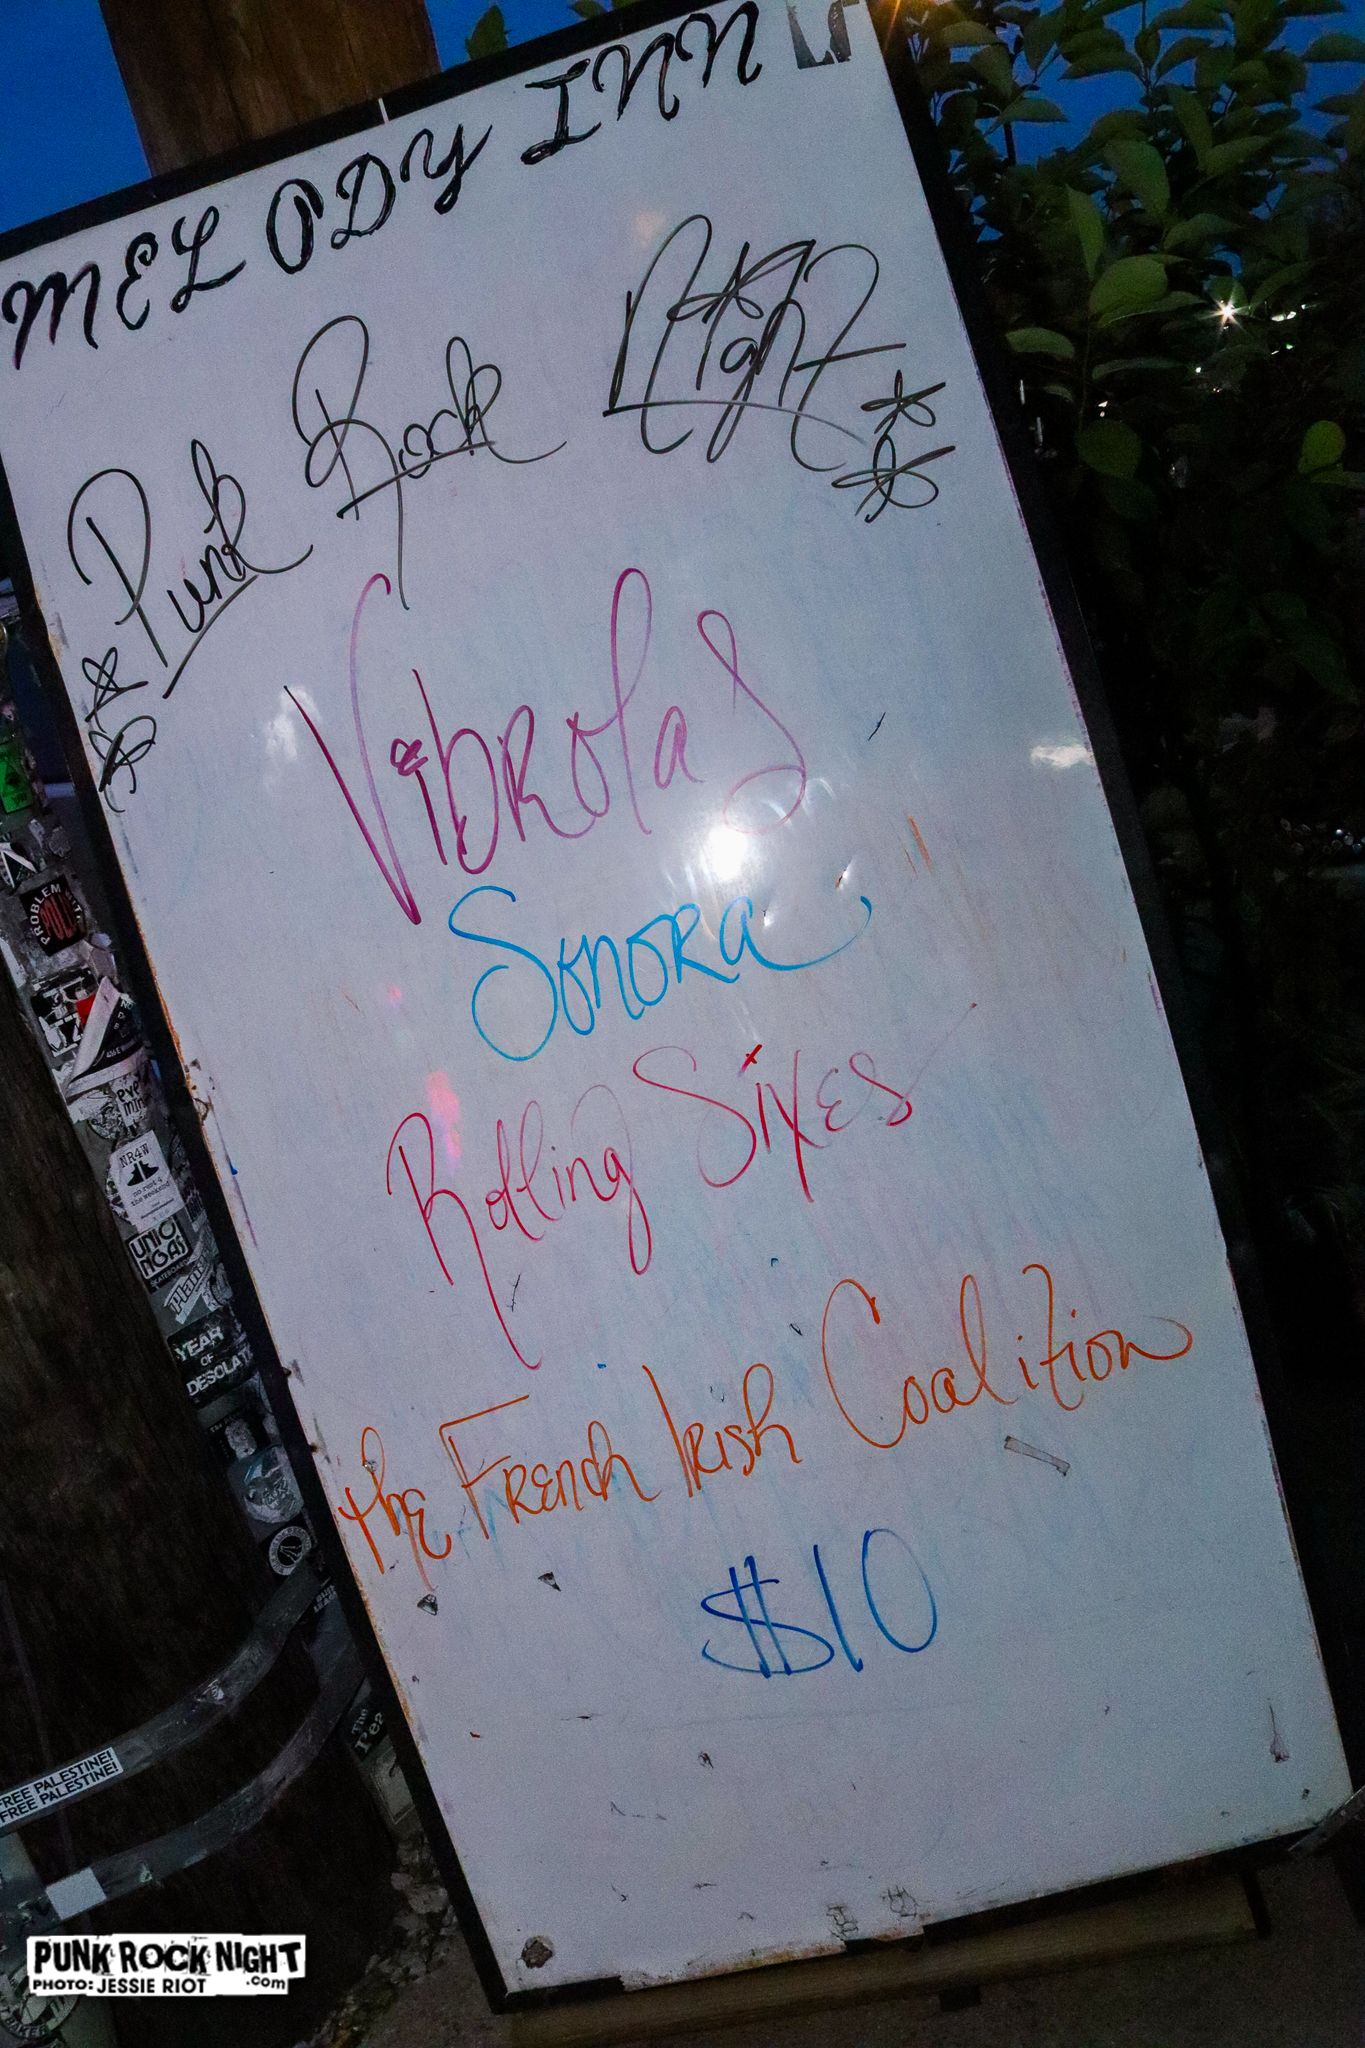 MELODY INN
Punk Rock Night
Vibrolas
Sonora
Rolling Sixes
the French Irish Coalition
$10
PROBLEM
NR4W
no rest 4
the weekend
YEAR
OF
DESOLAT
FREE PALESTINE!
FREE PALESTINE!
PUNK ROCK NIGHT
.com
PHOTO: JESSIE RIOT